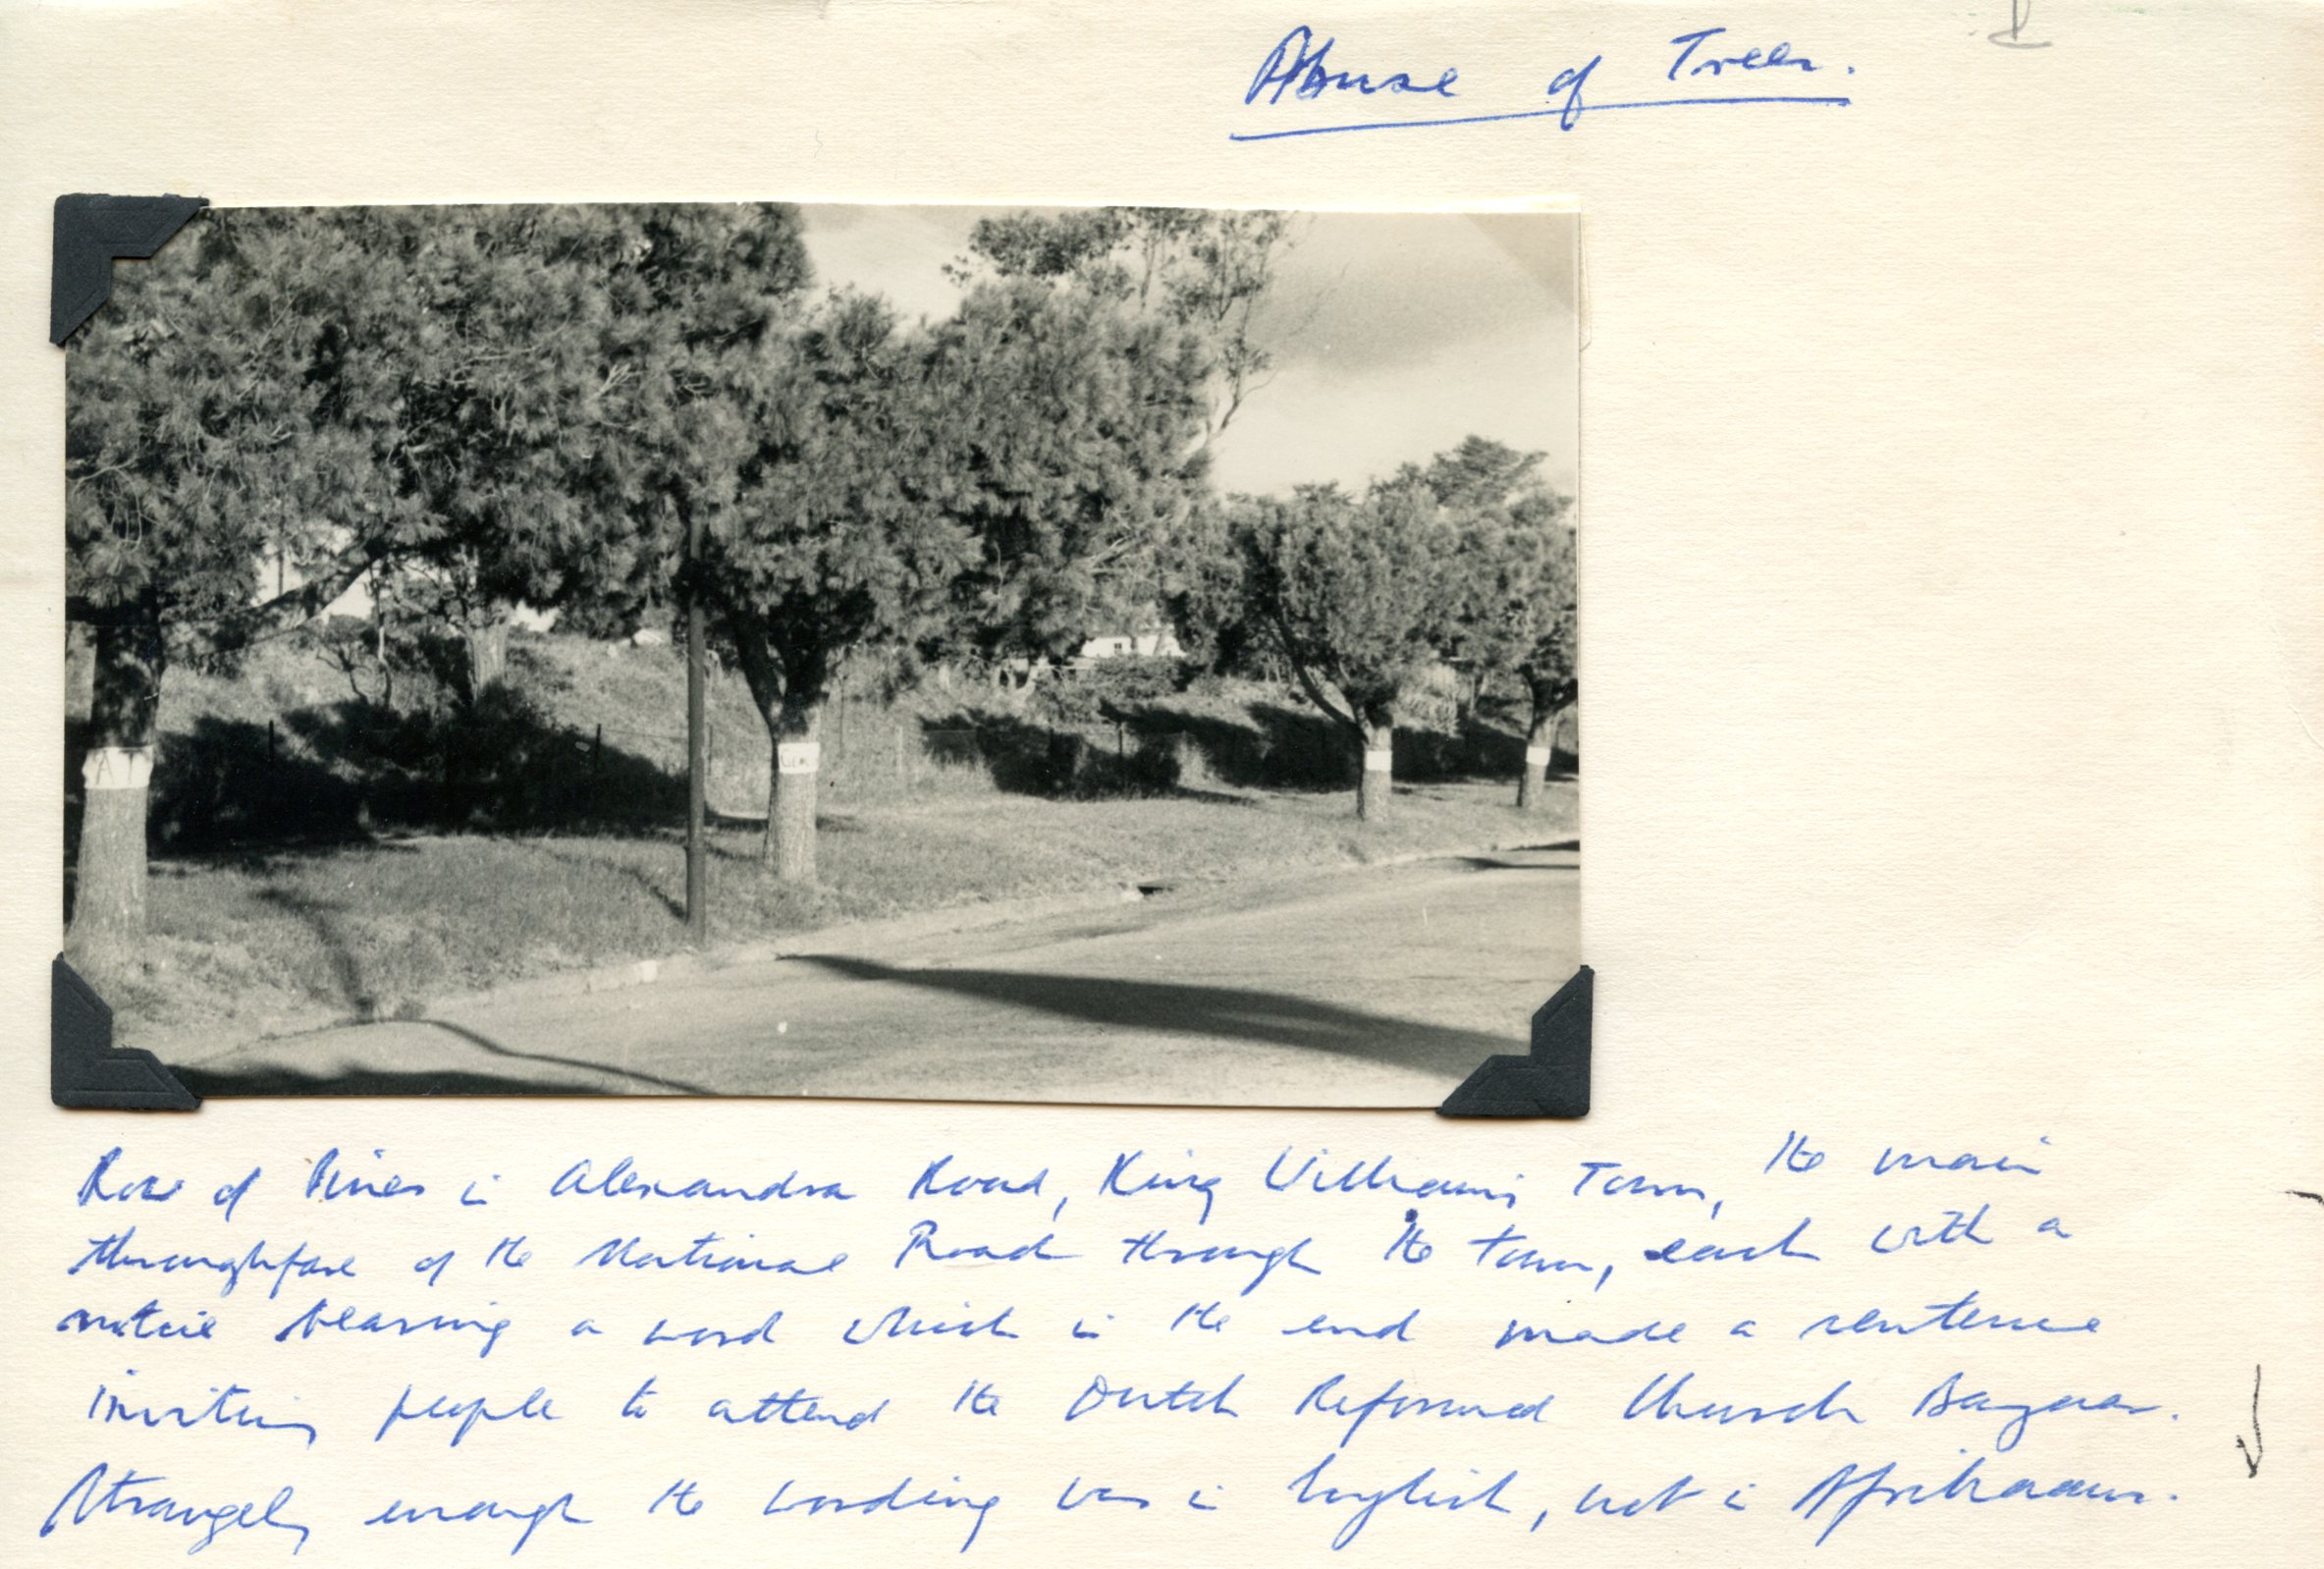 Abuse of Trees.
AT
Row of Pines in Alexandra Road, King Williams Town, the main
throughfare of the National Road through the town, each with a
notice bearing a word which in the end made a sentence
inviting people to attend the Dutch Reformed Church Bazaar.
Strangely enough the wording was in English, not in Afrikaans.